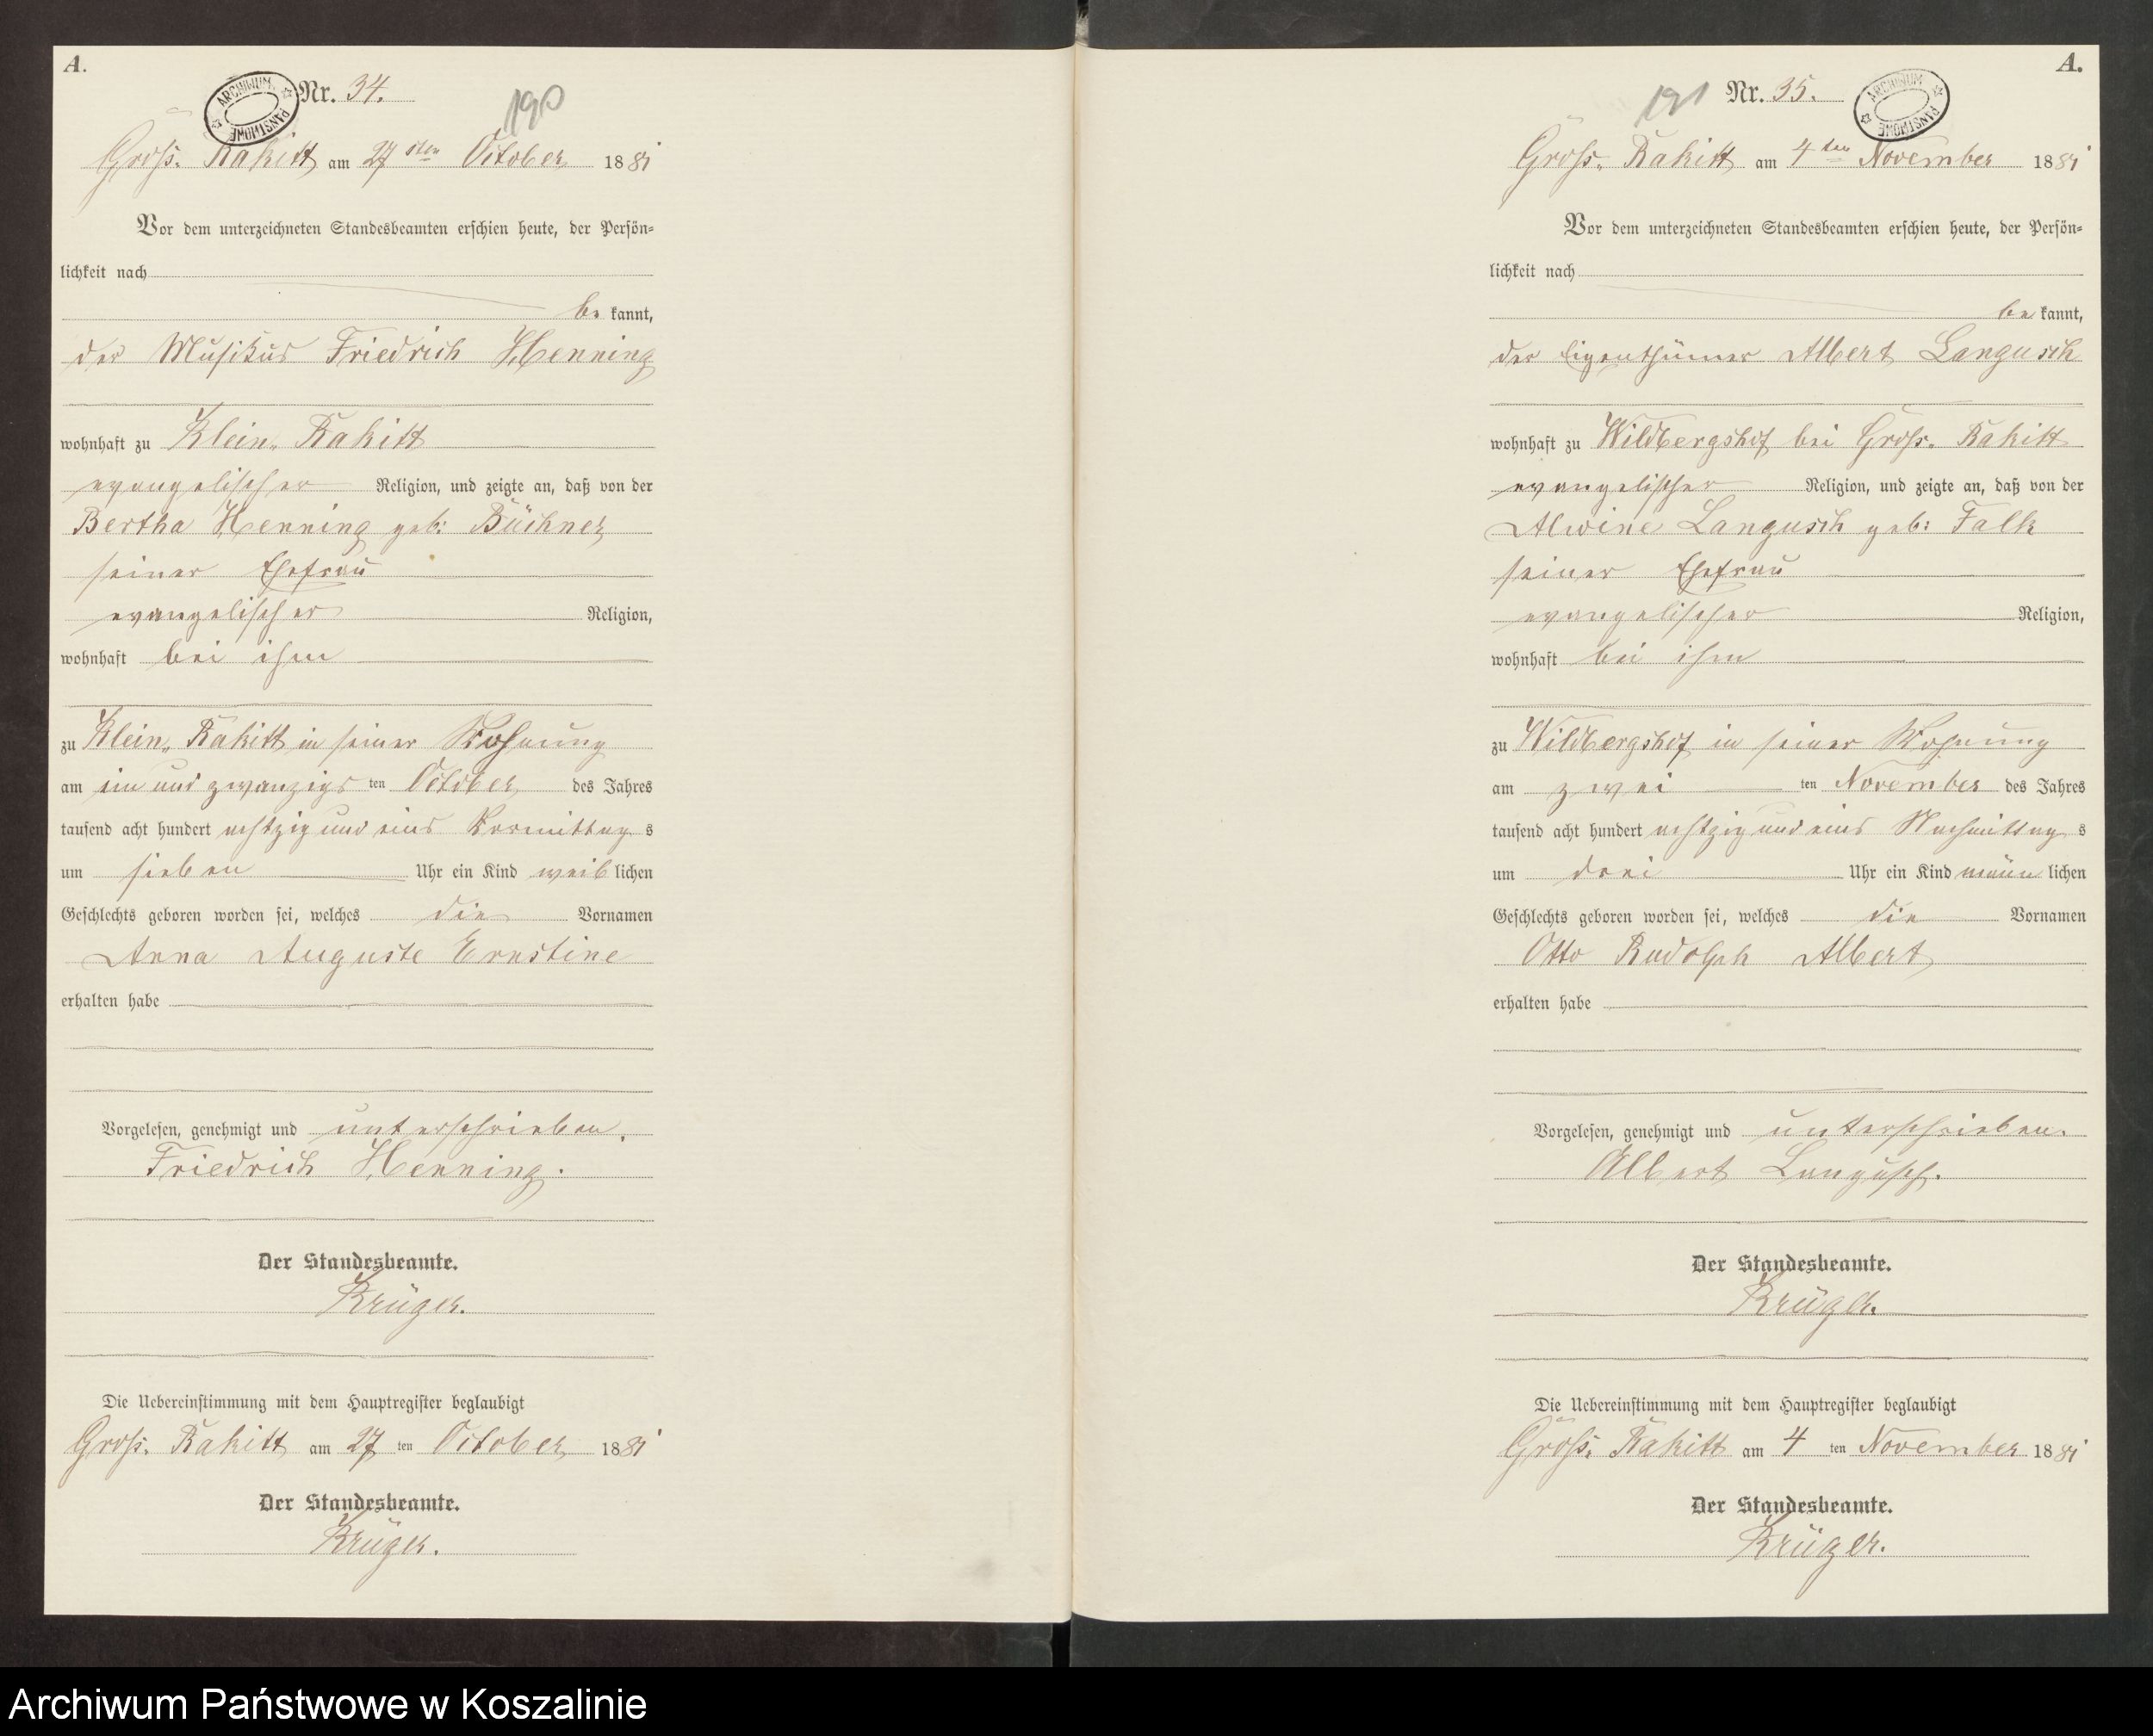 A.
ARCHIWUM PAŃSTWOWE
Nr. 34.
190
Groß. Rakitt am 27 sten October 1881
Vor dem unterzeichneten Standesbeamten erschien heute, der Persön-
lichkeit nach
be kannt,
der Musikus Friedrich Henning
wohnhaft zu Klein. Rakitt
evangelischer Religion, und zeigte an, daß von der
Bertha Henning geb: Büchner,
seiner Ehefrau
evangelischer Religion,
wohnhaft bei ihm
zu Klein. Rakitt in seiner Wohnung
am ein und zwanzigs ten October des Jahres
tausend acht hundert achtzig und eins Vormittag s
um sieben Uhr ein Kind weib lichen
Geschlechts geboren worden sei, welches die Vornamen
Anna Auguste Ernstine
erhalten habe
Vorgelesen, genehmigt und unterschrieben.
Friedrich Henning.
Der Standesbeamte.
Krüger.
Die Uebereinstimmung mit dem Hauptregister beglaubigt
Groß. Rakitt am 27 ten October 1881
Der Standesbeamte.
Krüger.
A.
191
Nr. 35.
ARCHIWUM PAŃSTWOWE
Groß. Rakitt am 4 ten November 1881
Vor dem unterzeichneten Standesbeamten erschien heute, der Persön-
lichkeit nach
be kannt,
der Eigenthümer Albert Langusch
wohnhaft zu Wildbergshof bei Groß. Rakitt
evangelischer Religion, und zeigte an, daß von der
Alwine Langusch geb: Falk
seiner Ehefrau
evangelischer Religion,
wohnhaft bei ihm
zu Wildbergshof in seiner Wohnung
am zwei ten November des Jahres
tausend acht hundert achtzig und eins Nachmittag s
um drei Uhr ein Kind männ lichen
Geschlechts geboren worden sei, welches die Vornamen
Otto Rudolph Albert
erhalten habe
Vorgelesen, genehmigt und unterschrieben.
Albert Langusch.
Der Standesbeamte.
Krüger.
Die Uebereinstimmung mit dem Hauptregister beglaubigt
Groß. Rakitt am 4 ten November 1881
Der Standesbeamte.
Krüger.
Archiwum Państwowe w Koszalinie